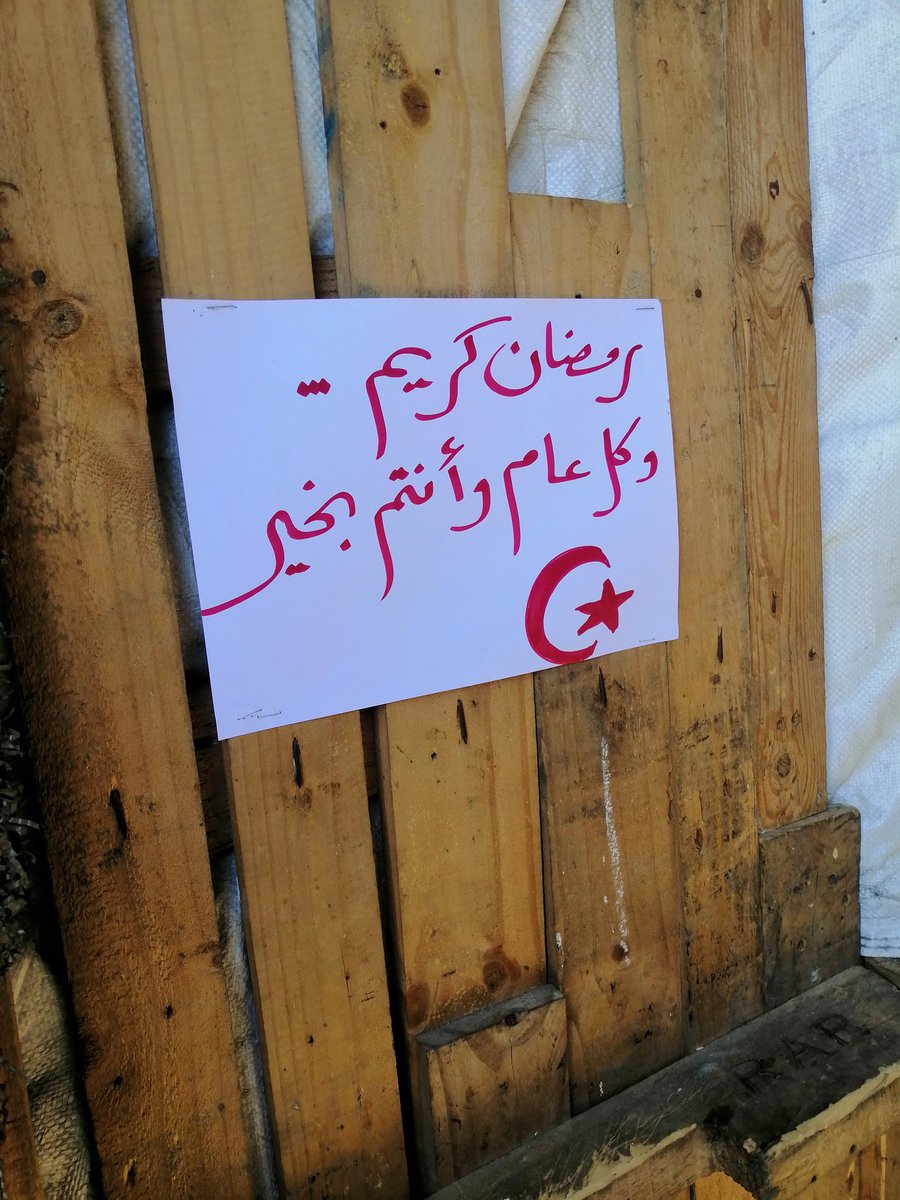 رمضان كريم ...
وكل عام وأنتم بخير
RAP